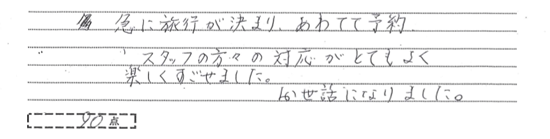 急に旅行が決まり、あわてて予約.
スタッフの方々の対応がとてもよく
楽しくすごせました。
お世話になりました。
90点